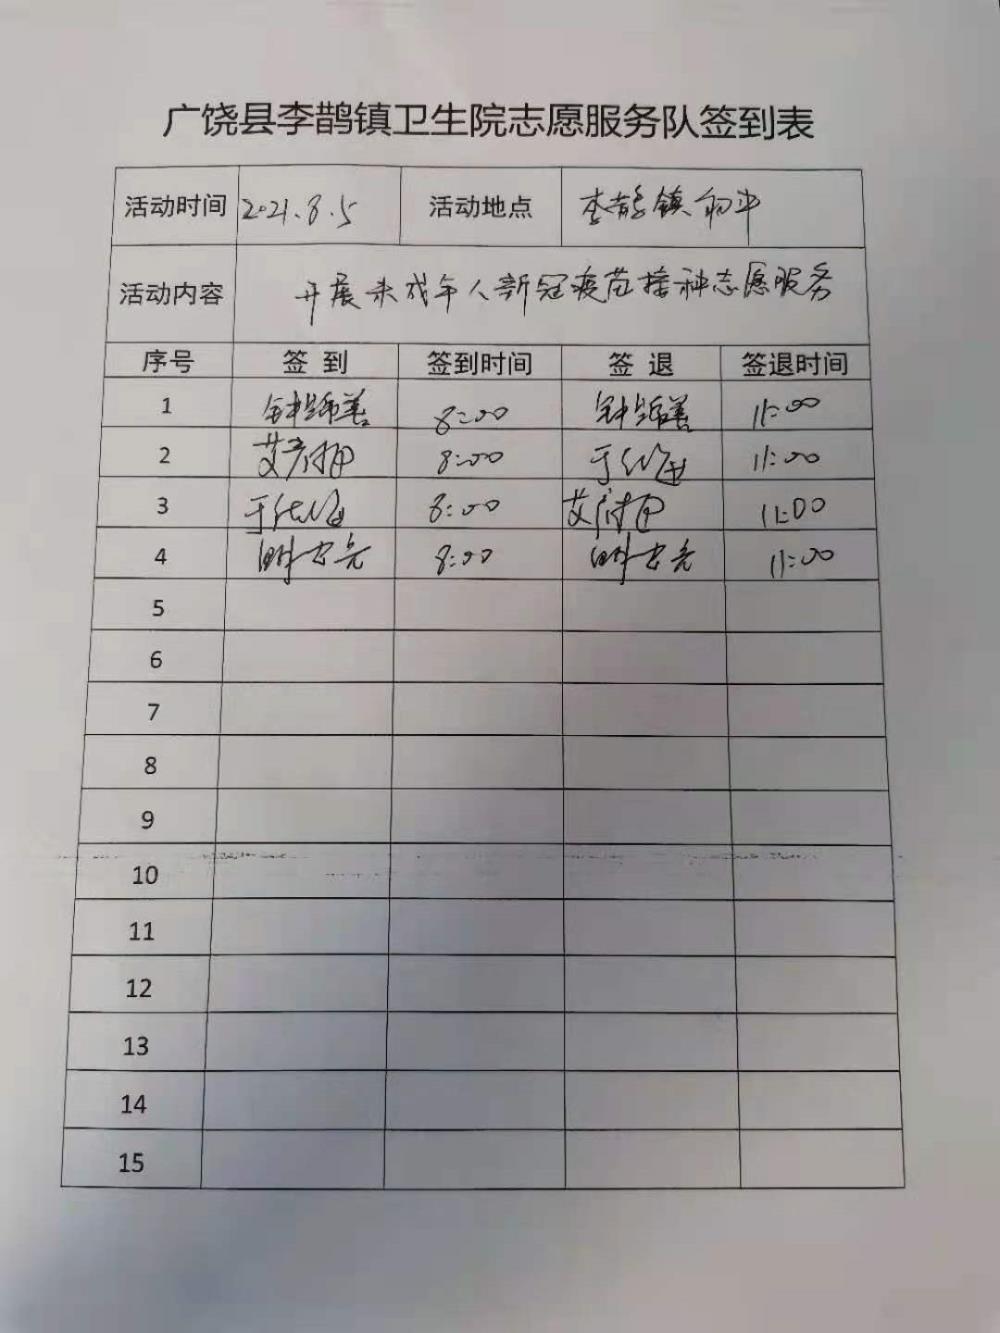 广饶县李鹊镇卫生院志愿服务队签到表
活动时间 2021.8.5 活动地点 李鹊镇初中
活动内容 开展未成年人新冠疫苗接种志愿服务
序号 签到 签到时间 签退 签退时间
1 8:00 11:00
2 艾 8:00 于 11:00
3 于 8:00 艾 11:00
4 8:00 11:00
5
6
7
8
9
10
11
12
13
14
15